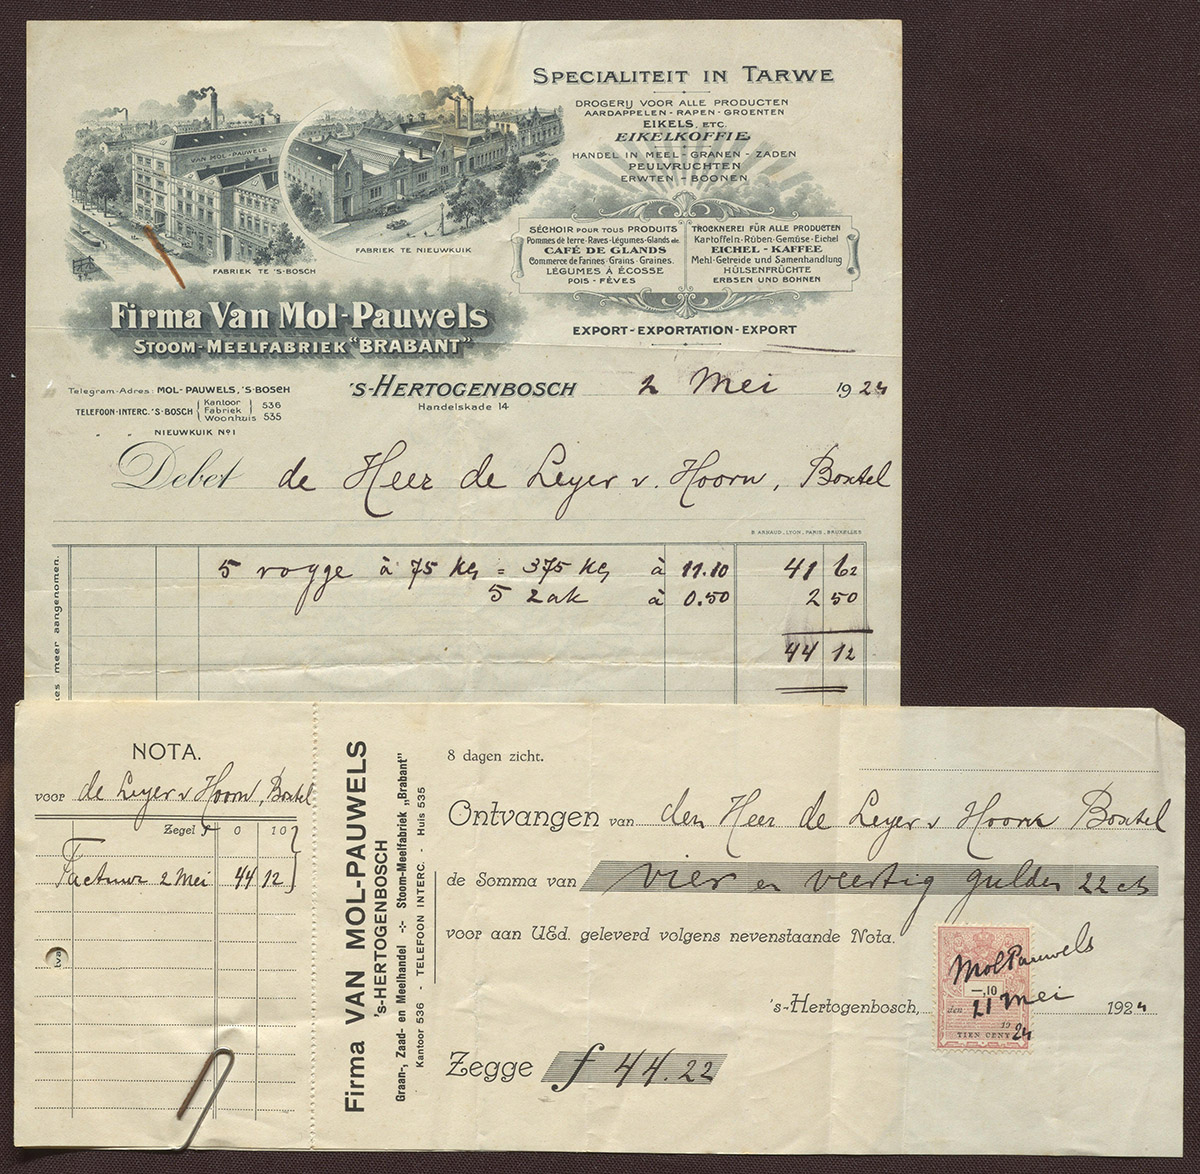 SPECIALITEIT IN TARWE
DROGERIJ VOOR ALLE PRODUCTEN
AARDAPPELEN - RAPEN - GROENTEN
EIKELS, ETC.
EIKELKOFFIE
HANDEL IN MEEL - GRANEN - ZADEN
PEULVRUCHTEN
ERWTEN - BOONEN
SÉCHOIR POUR TOUS PRODUITS
Pommes de terre-Raves-Légumes-Glands etc.
CAFÉ DE GLANDS
Commerce de Farines-Grains-Graines.
LÉGUMES À ÉCOSSE
POIS - FÊVES
TROCKNEREI FÜR ALLE PRODUCTEN
Kartoffeln-Rüben-Gemüse-Eichel
EICHEL-KAFFEE
Mehl-Getreide und Samenhandlung
HÜLSENFRÜCHTE
ERBSEN UND BOHNEN
EXPORT-EXPORTATION-EXPORT
VAN MOL-PAUWELS
FABRIEK TE 'S-BOSCH
FABRIEK TE NIEUWKUIK
Firma Van Mol-Pauwels
STOOM-MEELFABRIEK "BRABANT"
Telegram-Adres: MOL-PAUWELS, 'S-BOSCH
TELEFOON-INTERC. 'S-BOSCH
Kantoor
Fabriek 536
Woonhuis 535
NIEUWKUIK No 1
'S-HERTOGENBOSCH 2 Mei 1924
Handelskade 14
Debet de Heer de Leyer v. Hoorn, Boxtel
B. ARNAUD, LYON, PARIS, BRUXELLES
5 rogge à 75 Kg = 375 Kg à 11.10 41 62
5 zak à 0.50 2 50
44 12
meer aangenomen.
NOTA.
voor de Leyer v Hoorn, Boxtel
Zegel f 0 10
Factuur 2 Mei 44 12
Firma VAN MOL-PAUWELS
's-HERTOGENBOSCH
Graan-, Zaad- en Meelhandel -:- Stoom-Meelfabriek „Brabant"
Kantoor 536 - TELEFOON INTERC. - Huis 535
8 dagen zicht.
Ontvangen van den Heer de Leyer v Hoorn Boxtel
de Somma van vier en veertig gulden 22 cts
voor aan UEd. geleverd volgens nevenstaande Nota.
's-Hertogenbosch, 1924
Mol Pauwels
-,10
den 21 Mei
1924
TIEN CENT
Zegge f 44.22